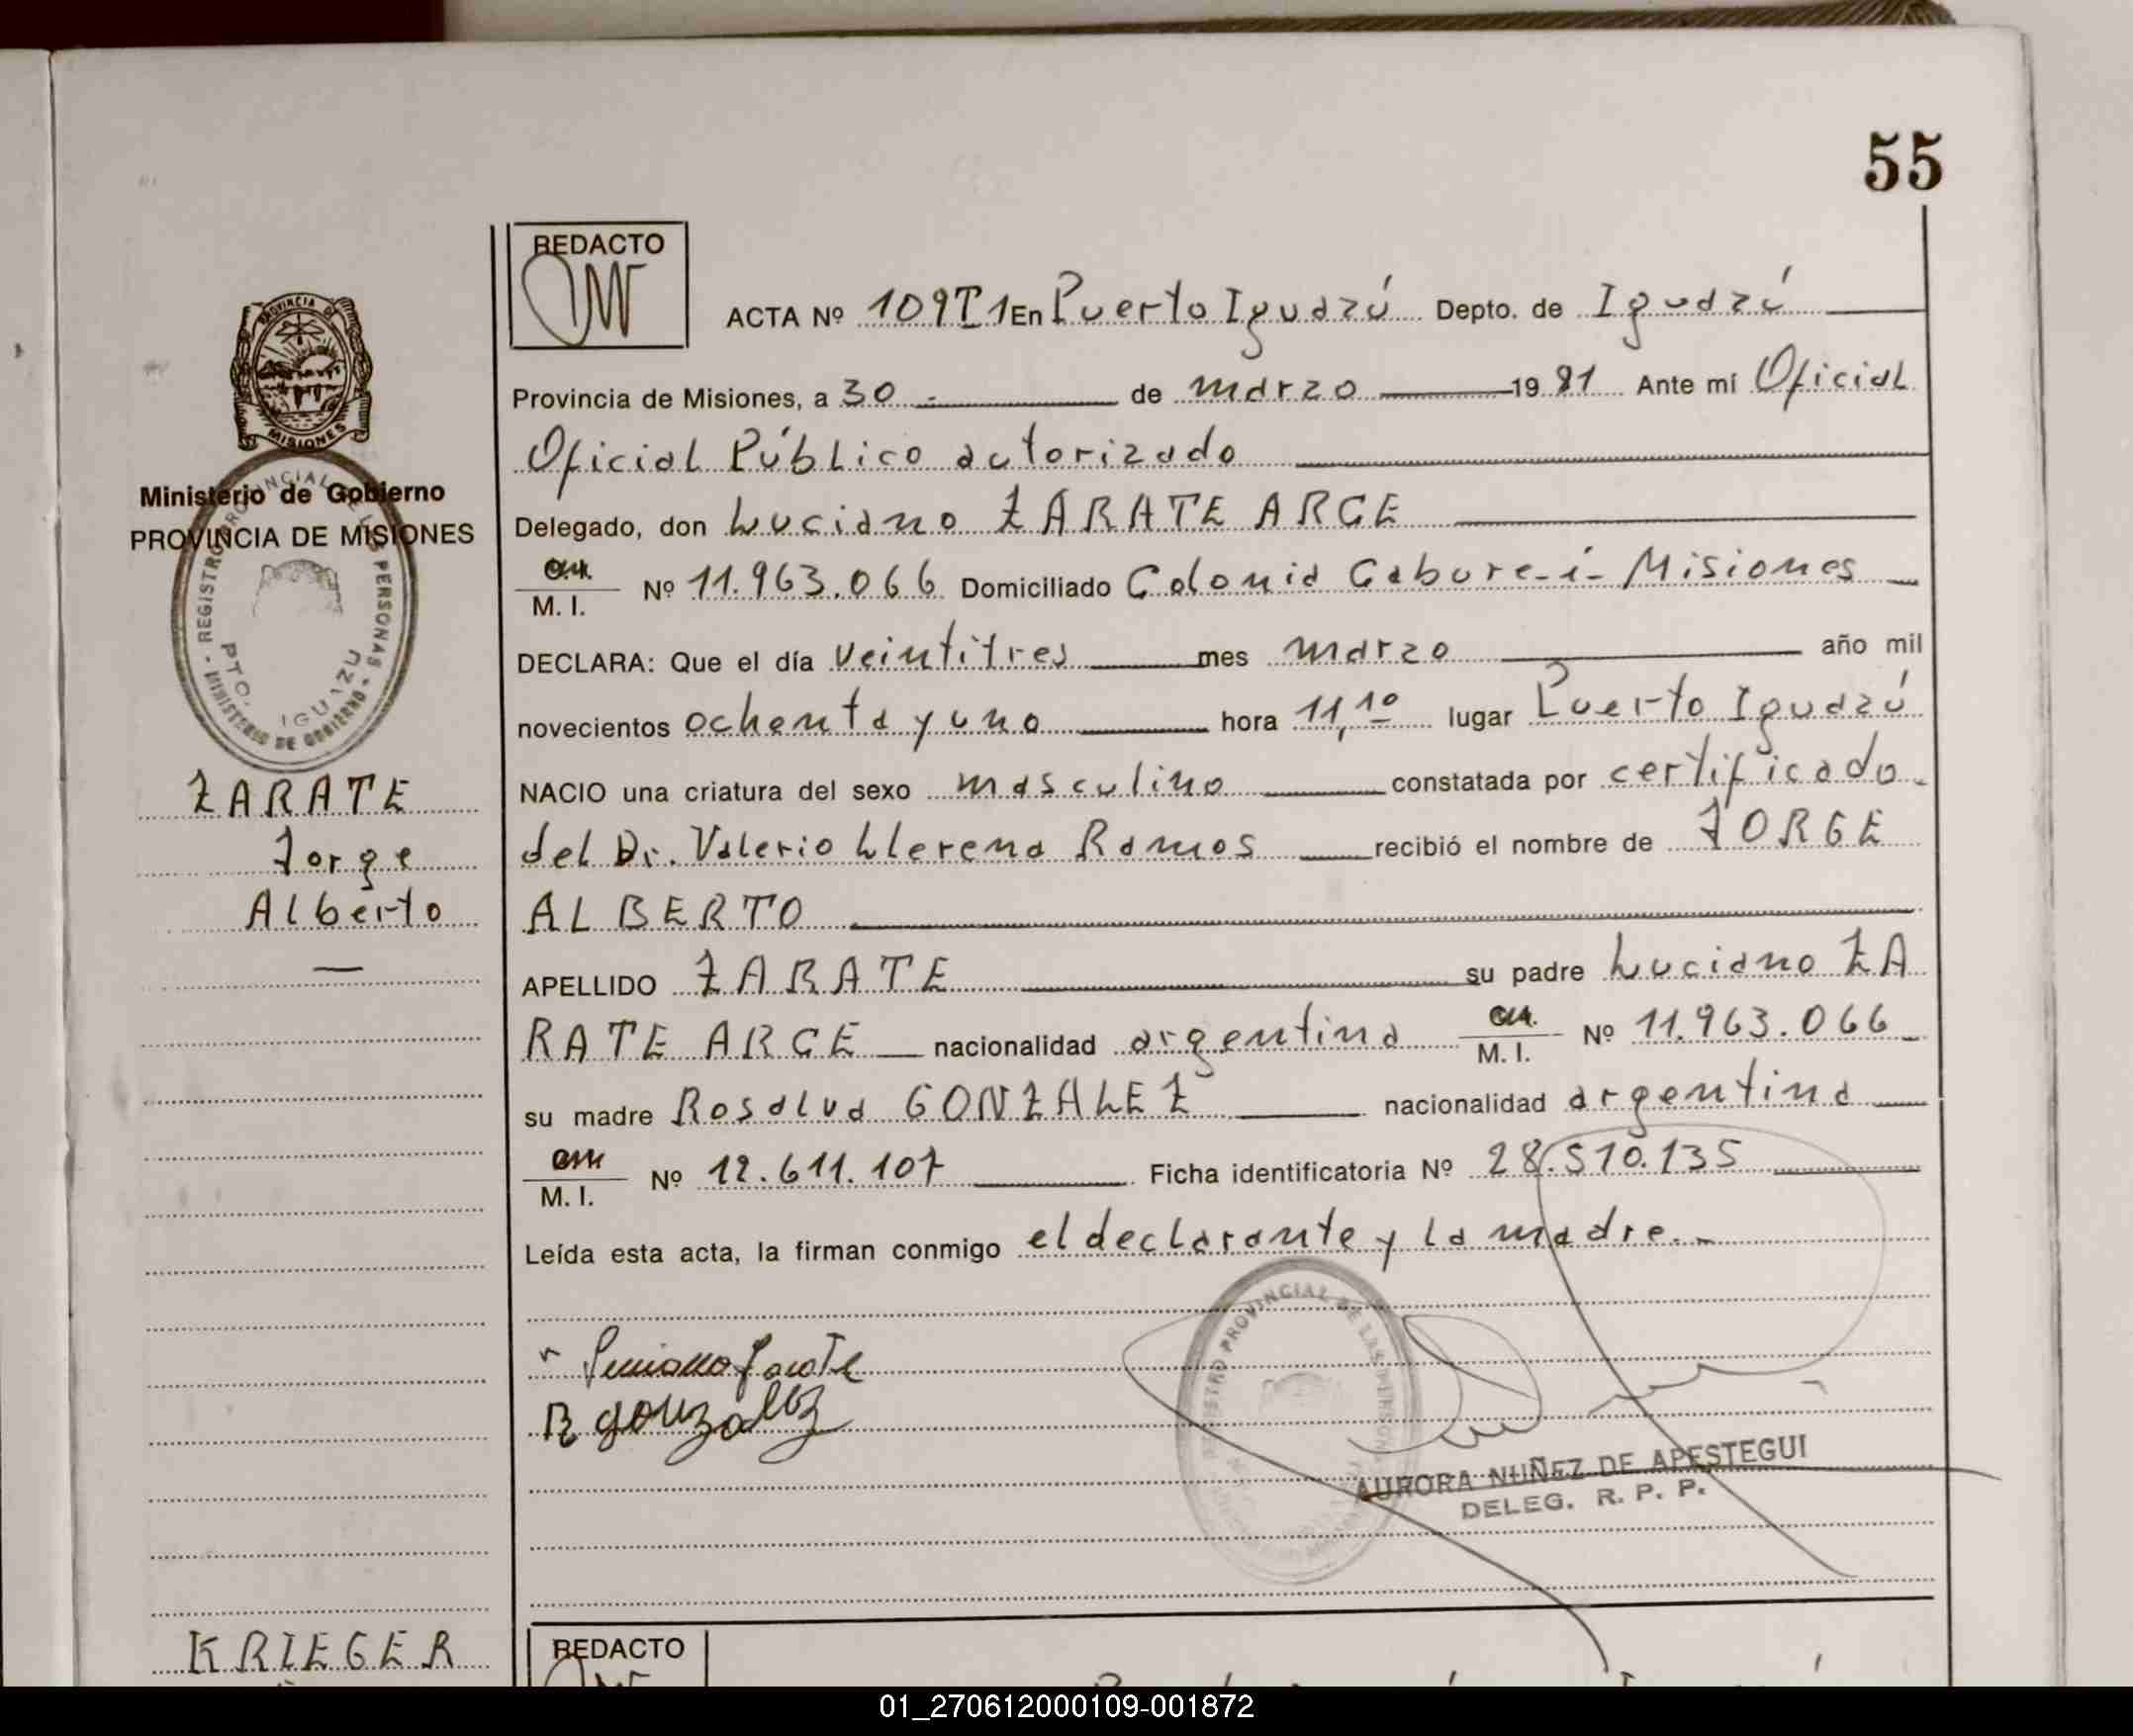 55
REDACTO
ACTA Nº 109T1 En Puerto Iguazú Depto. de Iguazú
Provincia de Misiones, a 30.- de marzo 19 81 Ante mí Oficial
Oficial Público autorizado
Delegado, don Luciano ZARATE ARCE
M. I. Nº 11.963.066 Domiciliado Colonia Cabure-i- Misiones
DECLARA: Que el día veintitres mes marzo año mil
novecientos ochenta y uno hora 11,10 lugar Puerto Iguazú
NACIO una criatura del sexo masculino constatada por certificado
del Dr. Valerio Llerena Ramos recibió el nombre de JORGE
ALBERTO
APELLIDO ZARATE su padre Luciano ZA
RATE ARCE nacionalidad argentina M. I. Nº 11.963.066
su madre Rosalva GONZALEZ nacionalidad argentina
M. I. Nº 12.611.107 Ficha identificatoria Nº 28.510.135
Leída esta acta, la firman conmigo el declarante y la madre.-
Luciano Zarate
R gonzalez
AURORA NUÑEZ DE APESTEGUI
DELEG. R. P. P.
REGISTRO PROVINCIAL DE LAS PERSONAS
PROVINCIA DE MISIONES
Ministerio de Gobierno
PROVINCIA DE MISIONES
REGISTRO PROVINCIAL DE LAS PERSONAS
PTO. IGUAZU
MINISTERIO DE GOBIERNO
ZARATE
Jorge
Alberto
KRIEGER
REDACTO
01_270612000109-001872